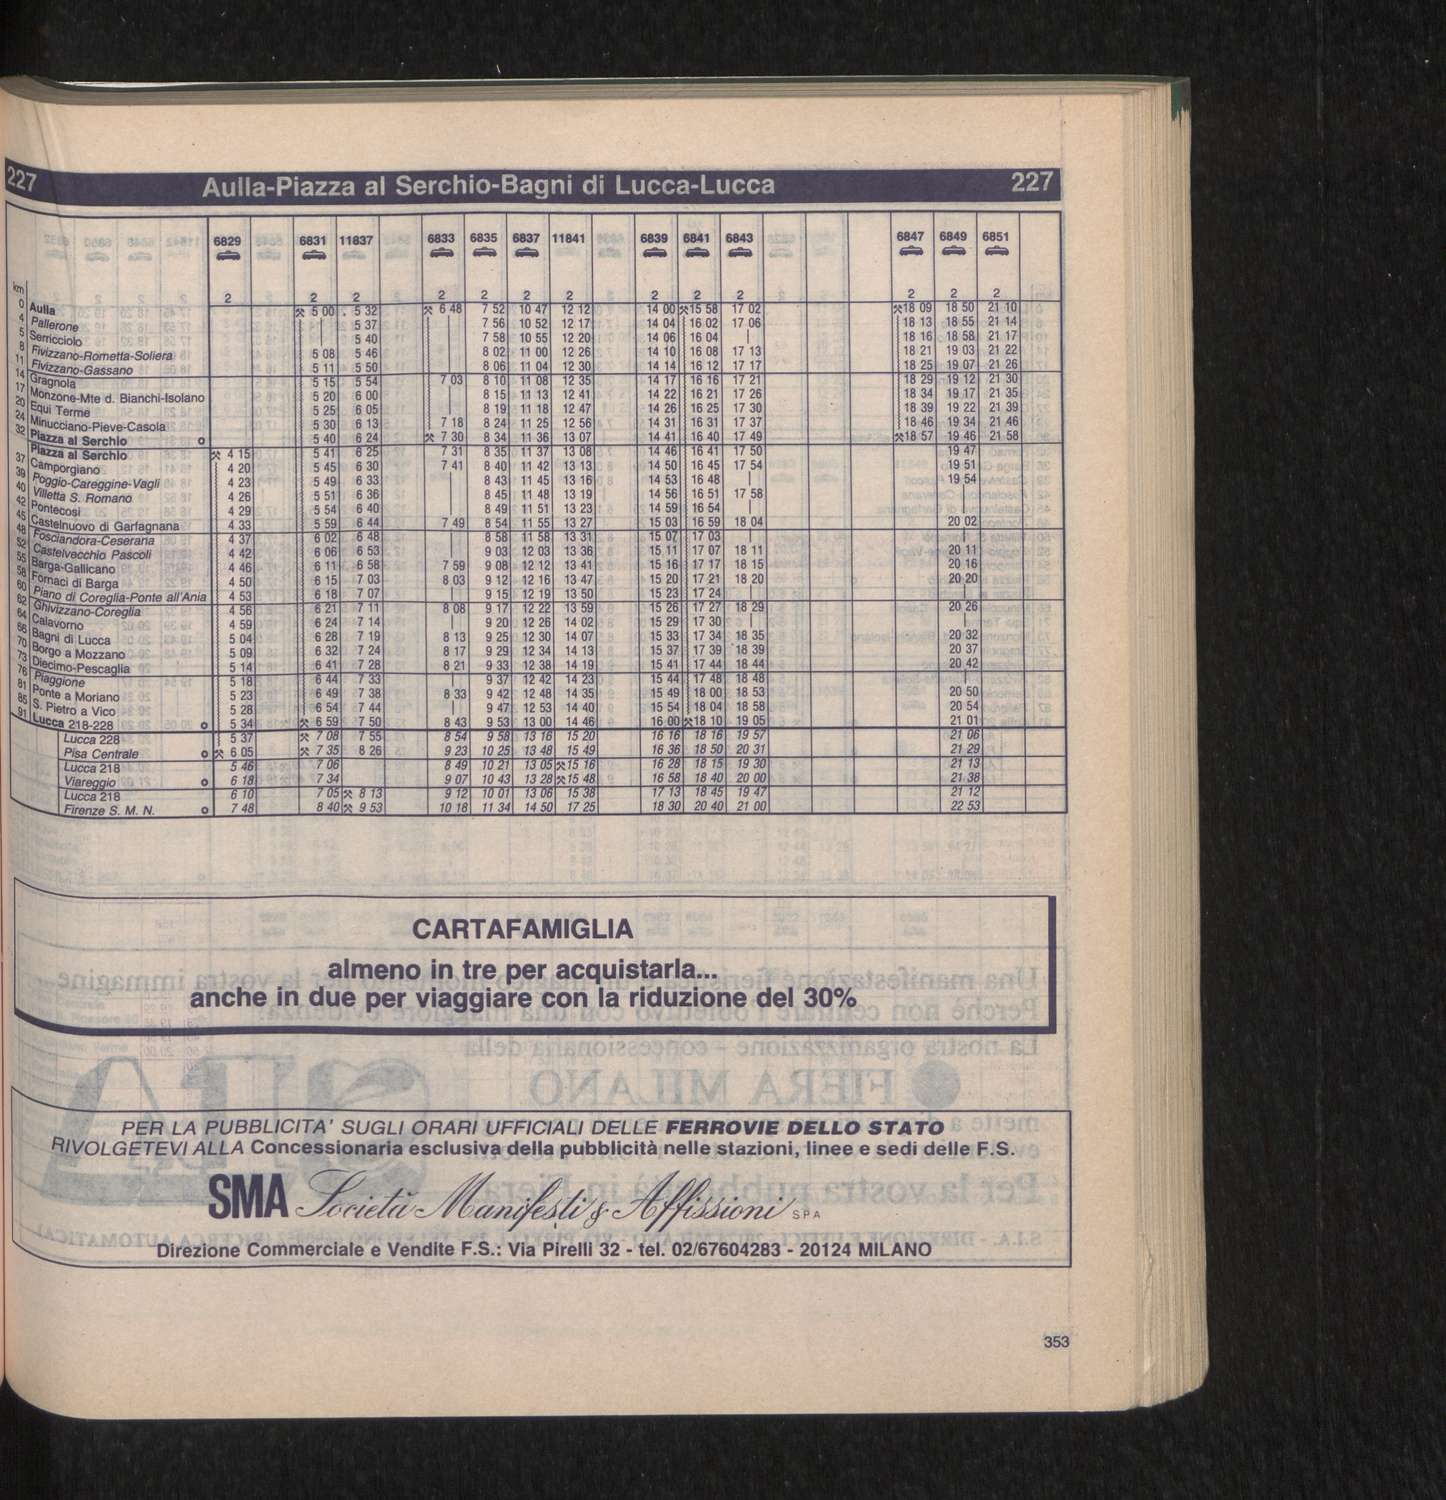 227 Aulla-Piazza al Serchio-Bagni di Lucca-Lucca 227
6829 6831 11837 6833 6835 6837 11841 6839 6841 6843 6847 6849 6851
km 2 2 2 2 2 2 2 2 2 2 2 2 2
0 Aulla 5 00 5 32 6 48 7 52 10 47 12 12 14 00 15 58 17 02 18 09 18 50 21 10
4 Pallerone | 5 37 | 7 56 10 52 12 17 14 04 16 02 17 06 18 13 18 55 21 14
5 Serricciolo | 5 40 | 7 58 10 55 12 20 14 06 16 04 | 18 16 18 58 21 17
8 Fivizzano-Rometta-Soliera 5 08 5 46 | 8 02 11 00 12 26 14 10 16 08 17 13 18 21 19 03 21 22
11 Fivizzano-Gassano 5 11 5 50 | 8 06 11 04 12 30 14 14 16 12 17 17 18 25 19 07 21 26
14 Gragnola 5 15 5 54 7 03 8 10 11 08 12 35 14 17 16 16 17 21 18 29 19 12 21 30
17 Monzone-Mte d. Bianchi-Isolano 5 20 6 00 | 8 15 11 13 12 41 14 22 16 21 17 26 18 34 19 17 21 35
20 Equi Terme 5 25 6 05 | 8 19 11 18 12 47 14 26 16 25 17 30 18 39 19 22 21 39
24 Minucciano-Pieve-Casola 5 30 6 13 7 18 8 24 11 25 12 56 14 31 16 31 17 37 18 46 19 34 21 46
32 Piazza al Serchio o 5 40 6 24 7 30 8 34 11 36 13 07 14 41 16 40 17 49 18 57 19 46 21 58
Piazza al Serchio 4 15 5 41 6 25 7 31 8 35 11 37 13 08 14 46 16 41 17 50 19 47
37 Camporgiano 4 20 5 45 6 30 7 41 8 40 11 42 13 13 14 50 16 45 17 54 19 51
39 Poggio-Careggine-Vagli 4 23 5 49 6 33 | 8 43 11 45 13 16 14 53 16 48 | 19 54
40 Villetta S. Romano 4 26 5 51 6 36 | 8 45 11 48 13 19 14 56 16 51 17 58 |
42 Pontecosi 4 29 5 54 6 40 | 8 49 11 51 13 23 14 59 16 54 | |
45 Castelnuovo di Garfagnana 4 33 5 59 6 44 7 49 8 54 11 55 13 27 15 03 16 59 18 04 20 02
48 Fosciandora-Ceserana 4 37 6 02 6 48 | 8 58 11 58 13 31 15 07 17 03 | |
52 Castelvecchio Pascoli 4 42 6 06 6 53 | 9 03 12 03 13 36 15 11 17 07 18 11 20 11
55 Barga-Gallicano 4 46 6 11 6 58 7 59 9 08 12 12 13 41 15 16 17 17 18 15 20 16
58 Fornaci di Barga 4 50 6 15 7 03 8 03 9 12 12 16 13 47 15 20 17 21 18 20 20 20
60 Piano di Coreglia-Ponte all'Ania 4 53 6 18 7 07 | 9 15 12 19 13 50 15 23 17 24 | |
62 Ghivizzano-Coreglia 4 56 6 21 7 11 8 08 9 17 12 22 13 59 15 26 17 27 18 29 20 26
64 Calavorno 4 59 6 24 7 14 | 9 20 12 26 14 02 15 29 17 30 | |
66 Bagni di Lucca 5 04 6 28 7 19 8 13 9 25 12 30 14 07 15 33 17 34 18 35 20 32
70 Borgo a Mozzano 5 09 6 32 7 24 8 17 9 29 12 34 14 13 15 37 17 39 18 39 20 37
73 Diecimo-Pescaglia 5 14 6 41 7 28 8 21 9 33 12 38 14 19 15 41 17 44 18 44 20 42
76 Piaggione 5 18 6 44 7 33 | 9 37 12 42 14 23 15 44 17 48 18 48 |
81 Ponte a Moriano 5 23 6 49 7 38 8 33 9 42 12 48 14 35 15 49 18 00 18 53 20 50
85 S. Pietro a Vico 5 28 6 54 7 44 | 9 47 12 53 14 40 15 54 18 04 18 58 20 54
91 Lucca 218-228 o 5 34 6 59 7 50 8 43 9 53 13 00 14 46 16 00 18 10 19 05 21 01
Lucca 228 5 37 7 08 7 55 8 54 9 58 13 16 15 20 16 16 18 16 19 57 21 06
Pisa Centrale o 6 05 7 35 8 26 9 23 10 25 13 48 15 49 16 36 18 50 20 31 21 29
Lucca 218 5 46 7 06 8 49 10 21 13 05 15 16 16 28 18 15 19 30 21 13
Viareggio o 6 18 7 34 9 07 10 43 13 28 15 48 16 58 18 40 20 00 21 38
Lucca 218 6 10 7 05 8 13 9 12 10 01 13 06 15 38 17 13 18 45 19 47 21 12
Firenze S. M. N. o 7 48 8 40 9 53 10 18 11 34 14 50 17 25 18 30 20 40 21 00 22 53
CARTAFAMIGLIA
almeno in tre per acquistarla...
anche in due per viaggiare con la riduzione del 30%
PER LA PUBBLICITA' SUGLI ORARI UFFICIALI DELLE FERROVIE DELLO STATO
RIVOLGETEVI ALLA Concessionaria esclusiva della pubblicità nelle stazioni, linee e sedi delle F.S.
SMA Società Manifesti & Affissioni SPA
Direzione Commerciale e Vendite F.S.: Via Pirelli 32 - tel. 02/67604283 - 20124 MILANO
353